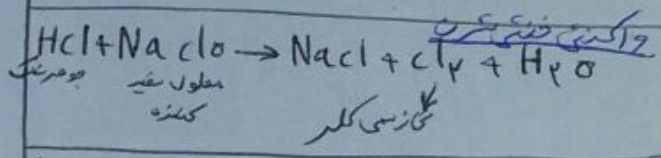 واکنش خنثی شدن
HCl + NaClO → NaCl + Cl۲ + H۲O
جوهرنمک
محلول سفید
کننده
گاز سمی کلر